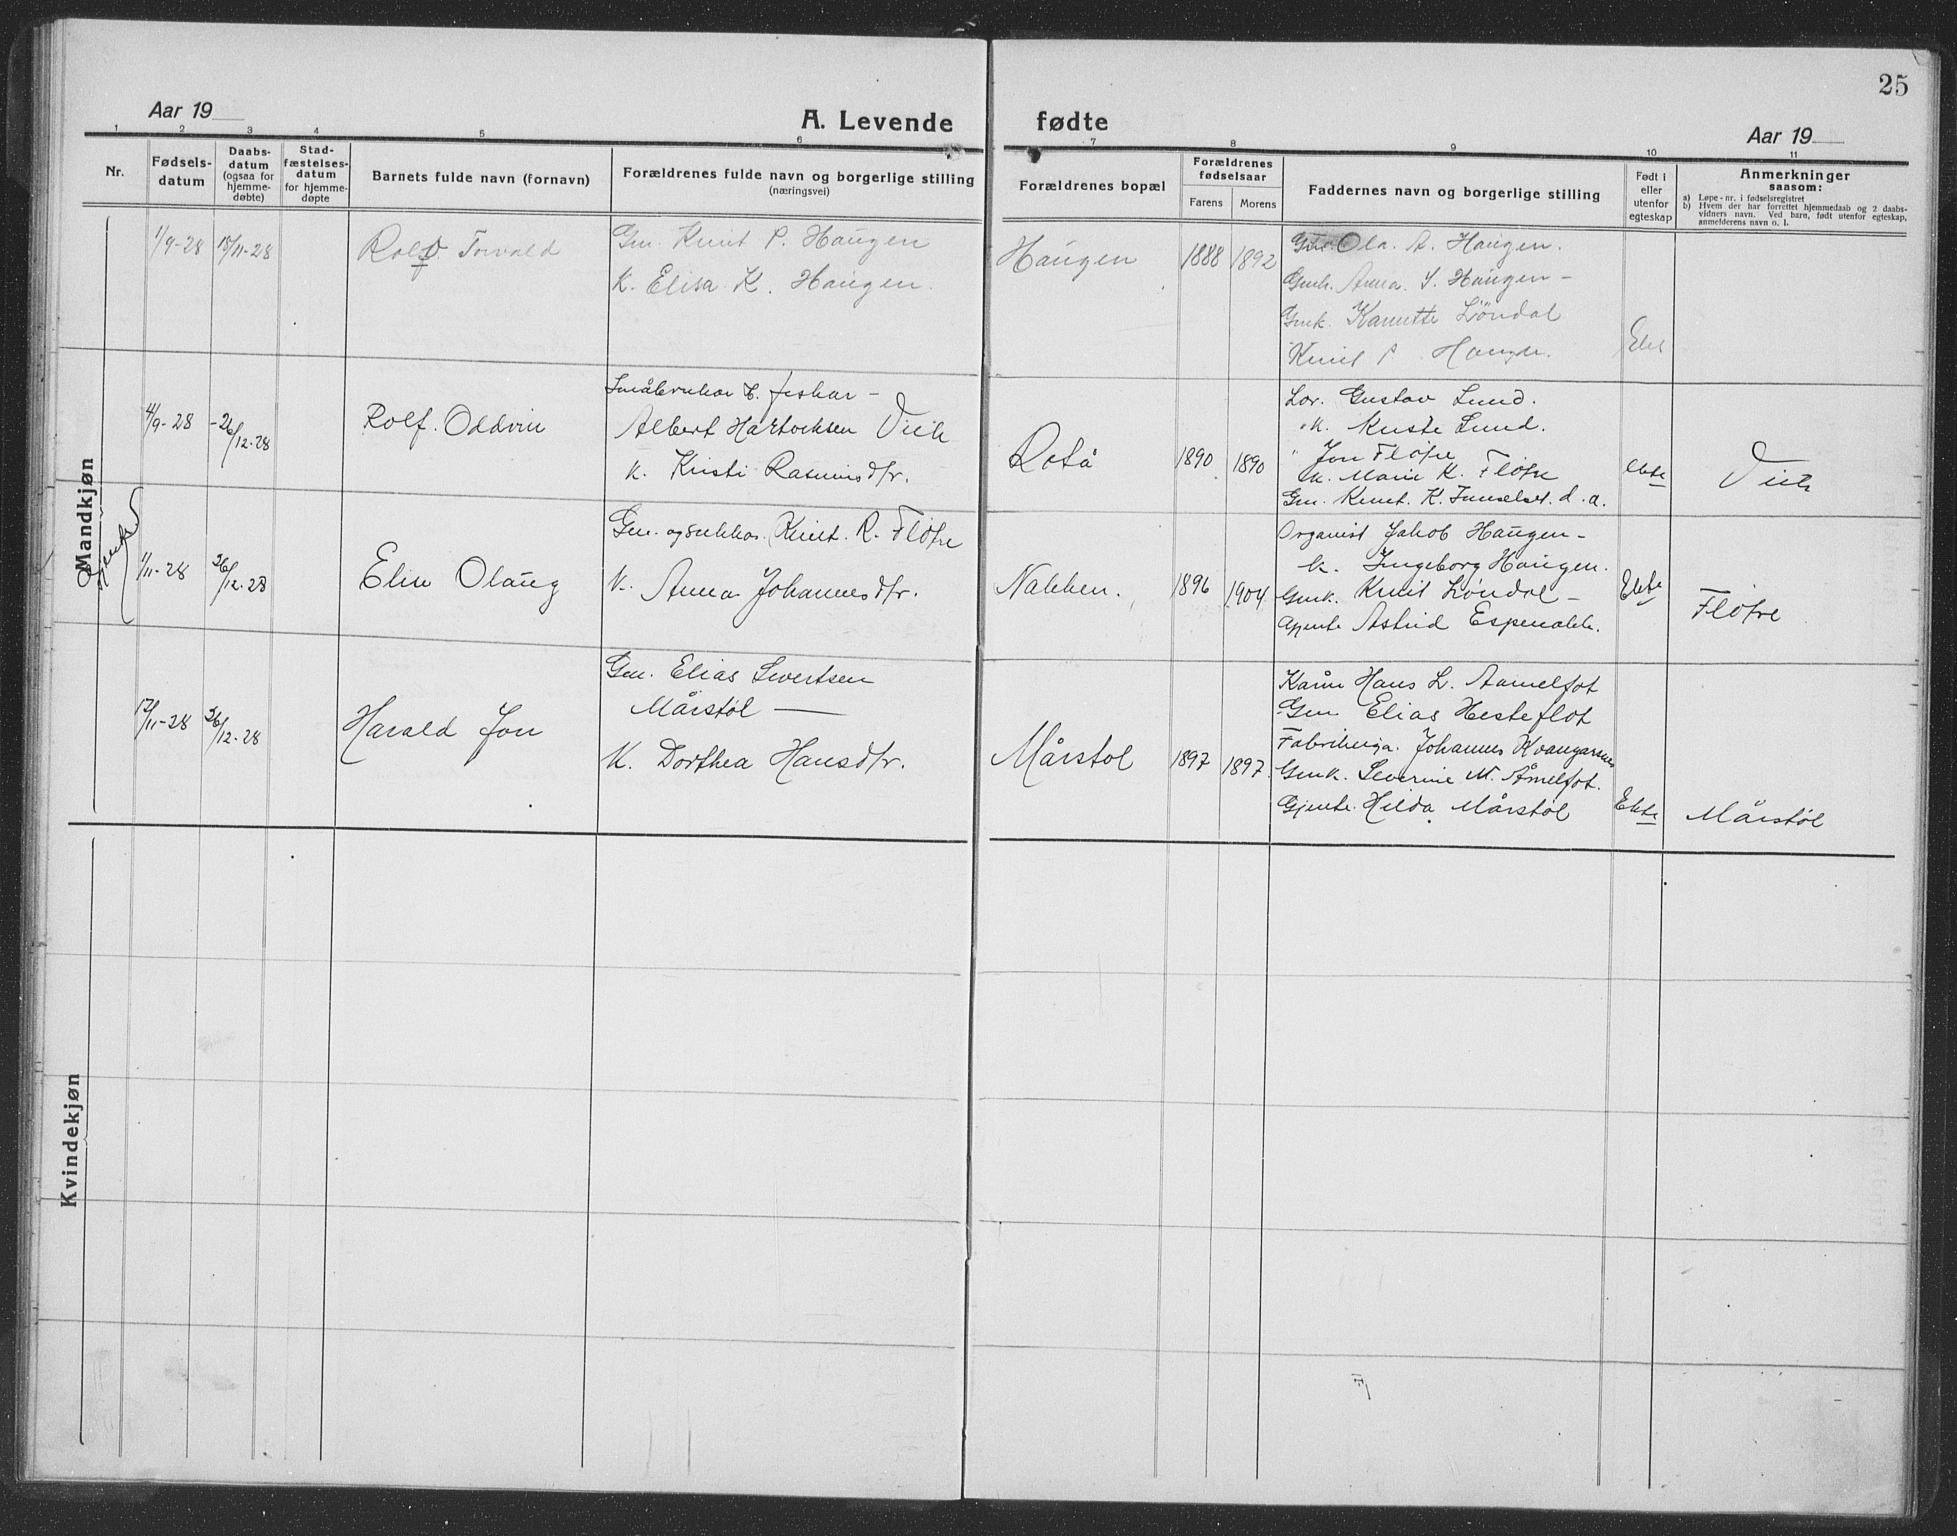 25
Aar 19
A. Levende fødte
Aar 19
1 2 3 4 5 6 7 8 9 10 11
Nr.
Fødsels-
datum
Daabs-
datum
(ogsaa for
hjemme-
døbte)
Stad-
fæstelses-
datum
for hjemme-
døpte
Barnets fulde navn (fornavn)
Forældrenes fulde navn og borgerlige stilling
(næringsvei)
Forældrenes bopæl
Forældrenes
fødselsaar
Farens
Morens
Faddernes navn og borgerlige stilling
Født i
eller
utenfor
egteskap
Anmerkninger
saasom:
a) Løpe-nr. i fødselsregistret
b) Hvem der har forrettet hjemmedaab og 2 daabs-
vidners navn. Ved barn, født utenfor egteskap,
anmelderens navn o. l.
Mandkjøn
1/9-28 18/11-28 Rolf Torvald
Gm. Knut P. Haugen
K. Elisa K. Haugen.
Haugen 1888 1892
Ola A. Haugen.
Gmk. Anna Haugen -
Gmk. Løndal
Knut P Haugen.
4/9-28 -26/12-28 Rolf. Oddvin
Småbruker & fisker -
Albert Hartviksen Viik
K. Kristi Rasmusdtr.
Rotå 1890 1890
Lor. Gustav Lund.
K. Lund.
" Jon Fløtre
K. Marie K. Fløtre
Gm. Knut. K. d. a.
ekte
Viik
1/11-28 26/12-28 Elin Olaug
Gm. Knut. R. Fløtre
K. Anna Johannesdtr.
Nakken. 1896 1904
Organist Jakob Haugen -
K. Ingeborg Haugen.
Gmk. Knut Løndal -
Gjente Astrid Espenakk.
Ekte
Fløtre
17/11-28 26/12-28 Harald Jon
Gm. Elias Sivertsen
Mårstøl
K. Dorthea Hansdtr.
Mårstøl 1897 1897
Hans L. Aamelfot
Gm Elias Hesteflot
Johannes
Gmk. Severine M. Åmelfot.
Gjente. Hilda Mårstøl
Ekte
Mårstøl
Kvindekjøn